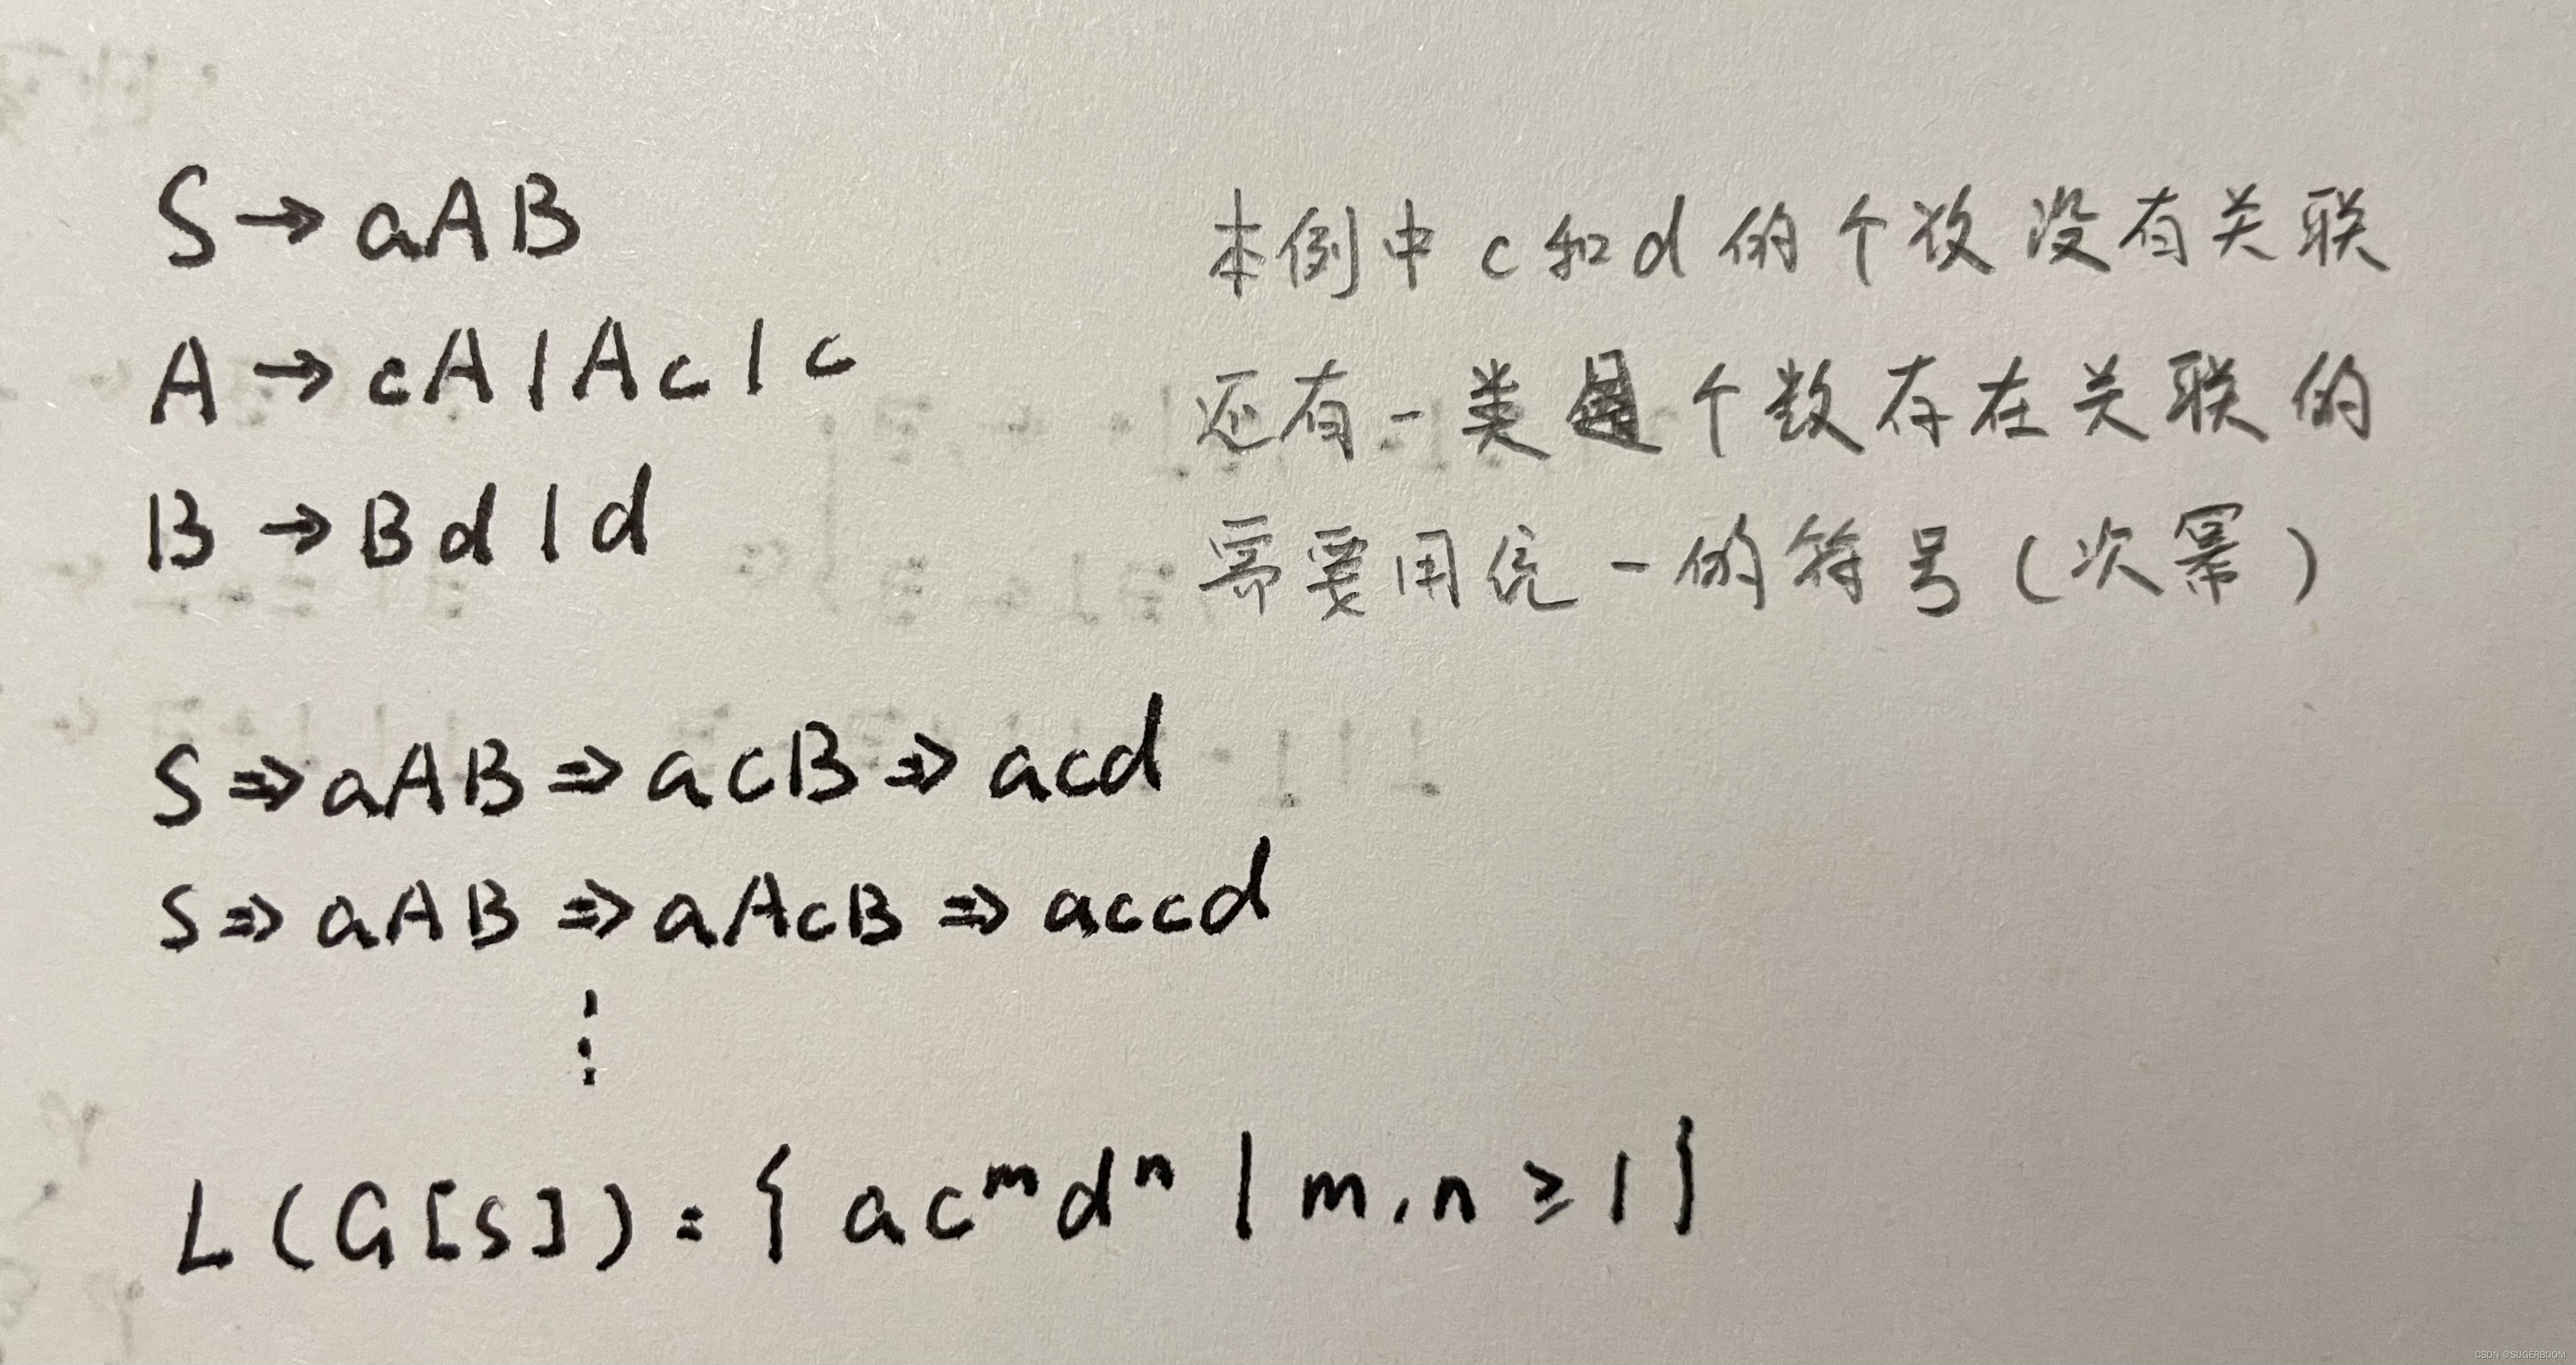 S → aAB
A → cA | Ac | c
B → Bd | d
本例中c和d的个数没有关联
还有一类个数存在关联的
需要用统一的符号(次幂)
S ⇒ aAB ⇒ acB ⇒ acd
S ⇒ aAB ⇒ aAcB ⇒ accd
⋮
L(G[S]) = { acᵐdⁿ | m,n ≥ 1 }
CSDN @SUGERBOOM